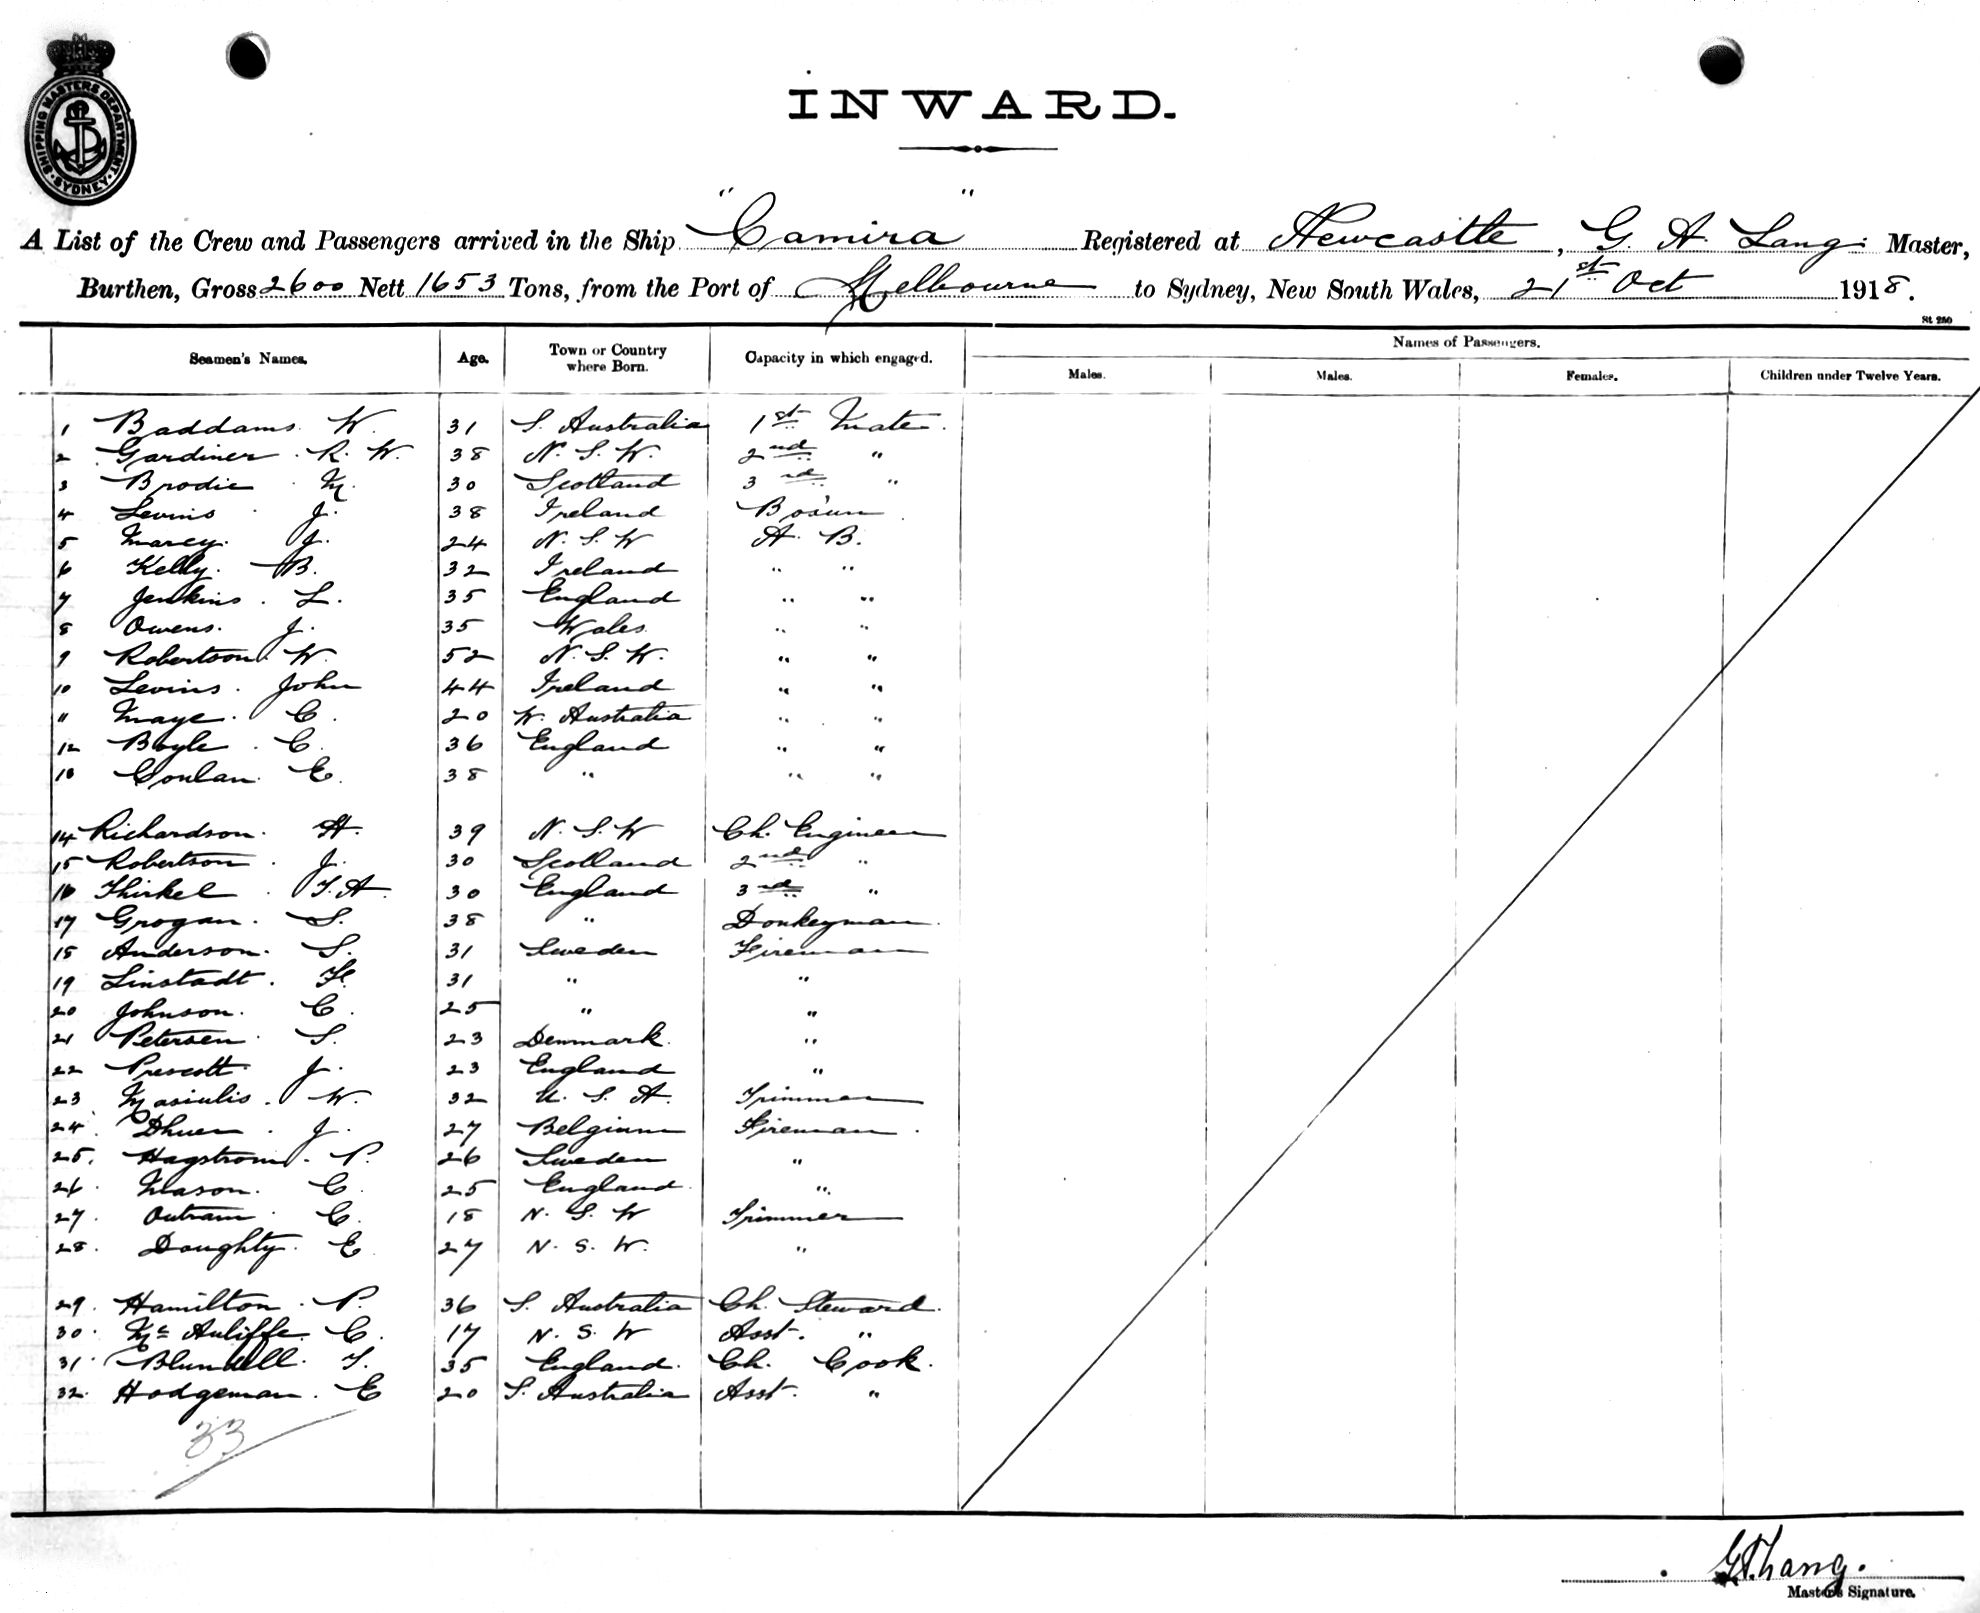 SHIPPING MASTERS DEPARTMENT
SYDNEY
INWARD.
A List of the Crew and Passengers arrived in the Ship "Camira" Registered at Newcastle, G. A. Lang Master,
Burthen, Gross 2600 Nett 1653 Tons, from the Port of Melbourne to Sydney, New South Wales, 21st Oct 1918.
St 250
Seamen's Names. Age. Town or Country where Born. Capacity in which engaged. Names of Passengers.
Males. Males. Females. Children under Twelve Years.
1 Baddams W. 31 S. Australia 1st Mate.
2 Gardiner R. W. 38 N. S. W. 2nd "
3 Brodie M. 30 Scotland 3rd "
4 Levins J. 38 Ireland Bo'sun
5 Marey J. 24 N. S. W A. B.
6 Kelly. B. 32 Ireland " "
7 Jenkins. L. 35 England " "
8 Owens. J. 35 Wales " "
9 Robertson. W. 52 N. S. W. " "
10 Levins. John 44 Ireland " "
11 Maye. C. 20 W. Australia " "
12 Boyle. C. 36 England " "
13 Conlan. E. 38 " " "
14 Richardson. H. 39 N. S. W Ch. Engineer
15 Robertson. J. 30 Scotland 2nd "
16 Thirkel. T. A. 30 England 3rd "
17 Grogan. S. 38 " Donkeyman.
18 Anderson. S. 31 Sweden Fireman
19 Linstadt. F. 31 " "
20 Johnson. C. 25 " "
21 Petersen. S. 23 Denmark. "
22 Prescott. J. 23 England "
23 Masiulis. W. 32 U. S. A. Trimmer
24. Dhuer. J. 27 Belgium Fireman.
25. Hagstrom. P. 26 Sweden "
26. Mason. C. 25 England. "
27. Outram. C. 18 N. S. W Trimmer
28. Doughty. E. 27 N. S. W. "
29. Hamilton. P. 36 S. Australia Ch. Steward.
30. Mc Auliffe. C. 17 N. S. W Asst. "
31. Blundell. T. 35 England. Ch. Cook.
32. Hodgeman. E 20 S. Australia Asst. "
33
G A Lang.
Master's Signature.